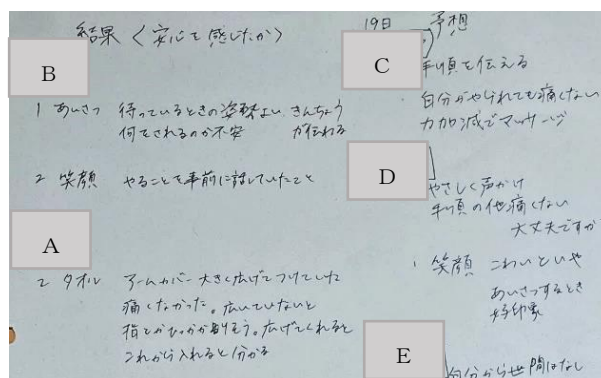 結果〈安心と感じたか〉
B
1 あいさつ 待っているときの姿勢よい、きんちょう
何をされるのか不安 が伝わる
2 笑顔 やることを事前に話していたこと
A
2 タオル アームカバー大きく広げてつけていた
痛くなかった。広いていないと
指とかひっかかりそう。広げてくれると
これから入れると分かる
19日 予想
C
手順を伝える
自分がやられても痛くない
力加減でマッサージ
D
やさしく声かけ
手順の他痛くない
大丈夫ですか
1 笑顔 こわいといや
あいさつするとき
好印象
E
自分から世間はなし